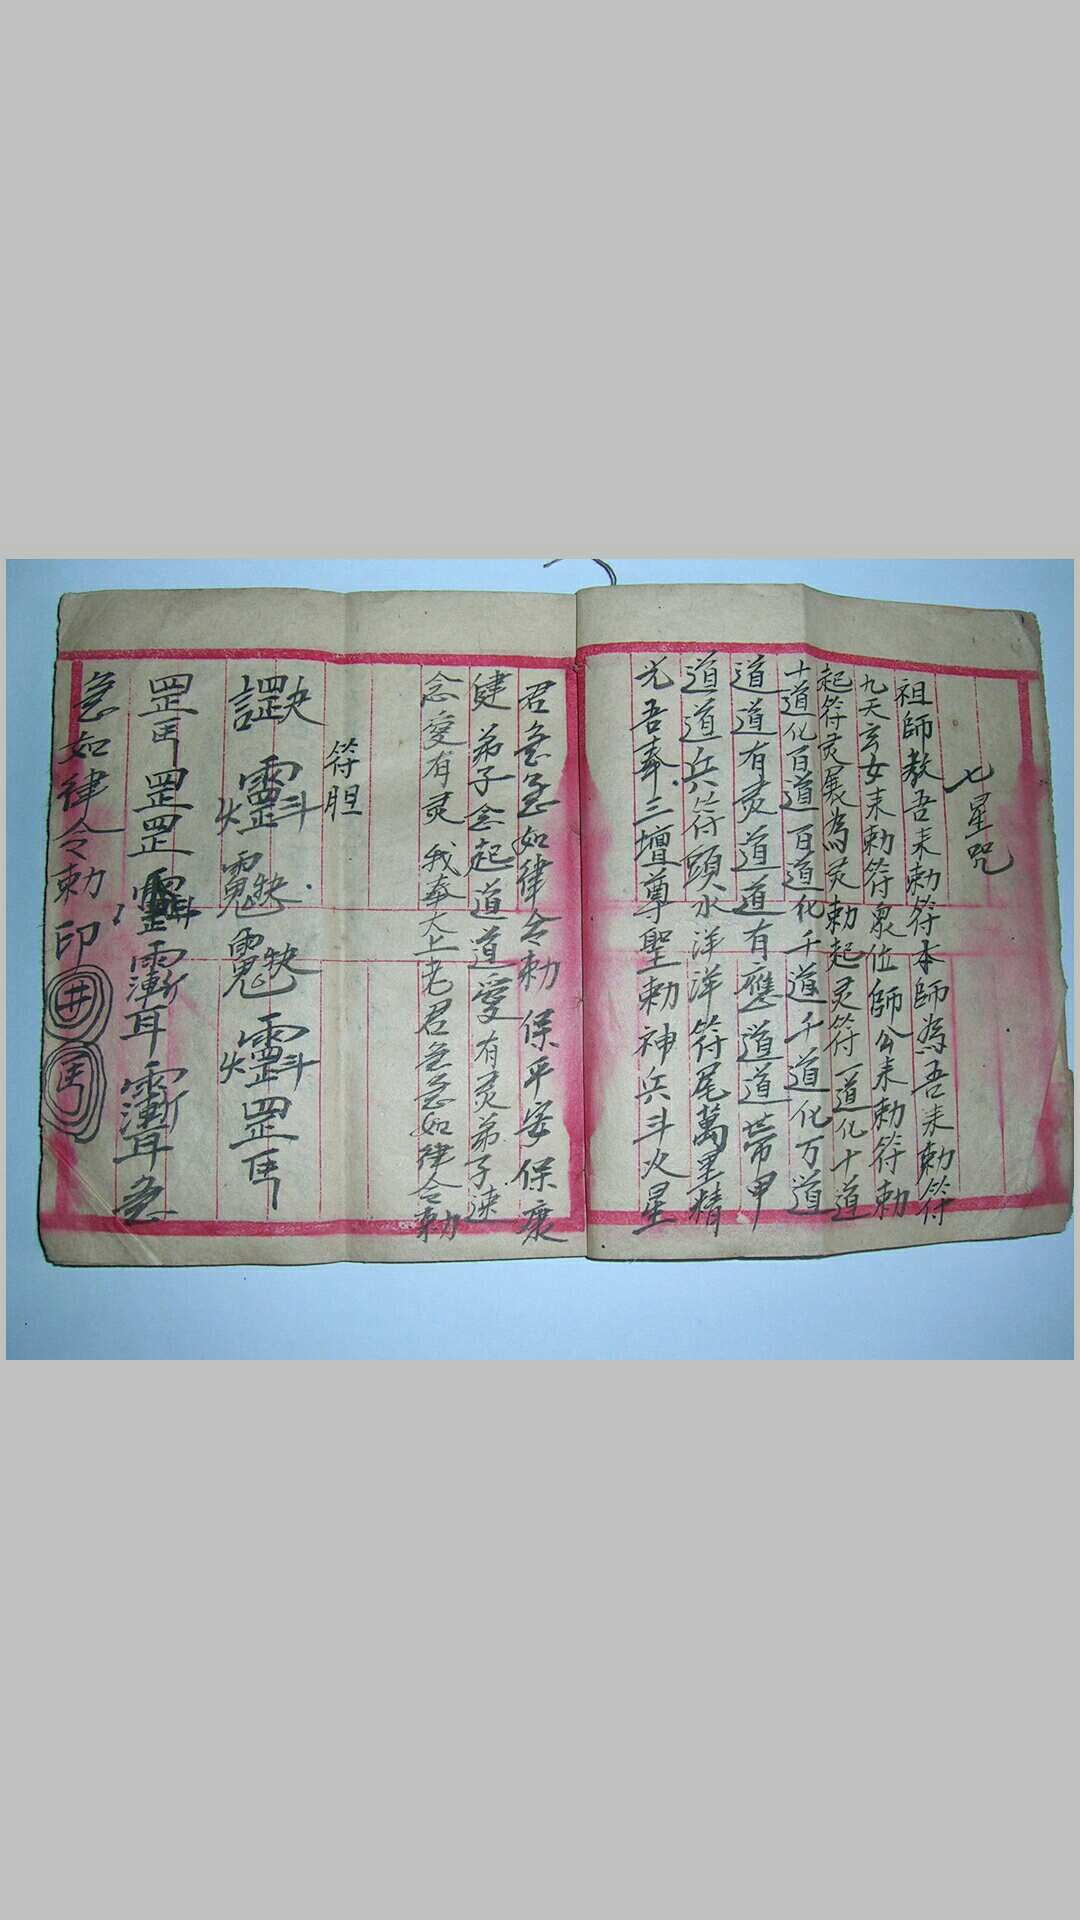 七星咒
祖師教吾耒勅符本師為吾耒勅符
九天玄女耒勅符泉位師公耒勅符勅
起符灵展為灵勅起灵符一道化十道
十道化百道百道化千道千道化万道
道道有灵道道有應道道带甲
道道兵符頭水洋洋符尾萬里精
光吾奉三壇尊聖勅神兵斗火星
君急急如律令勅保平安保康
健弟子念起道道愛有灵弟子速
念愛有灵我奉太上老君急急如律令勅
符胆
罡
罡罡急
急如律令勅印井